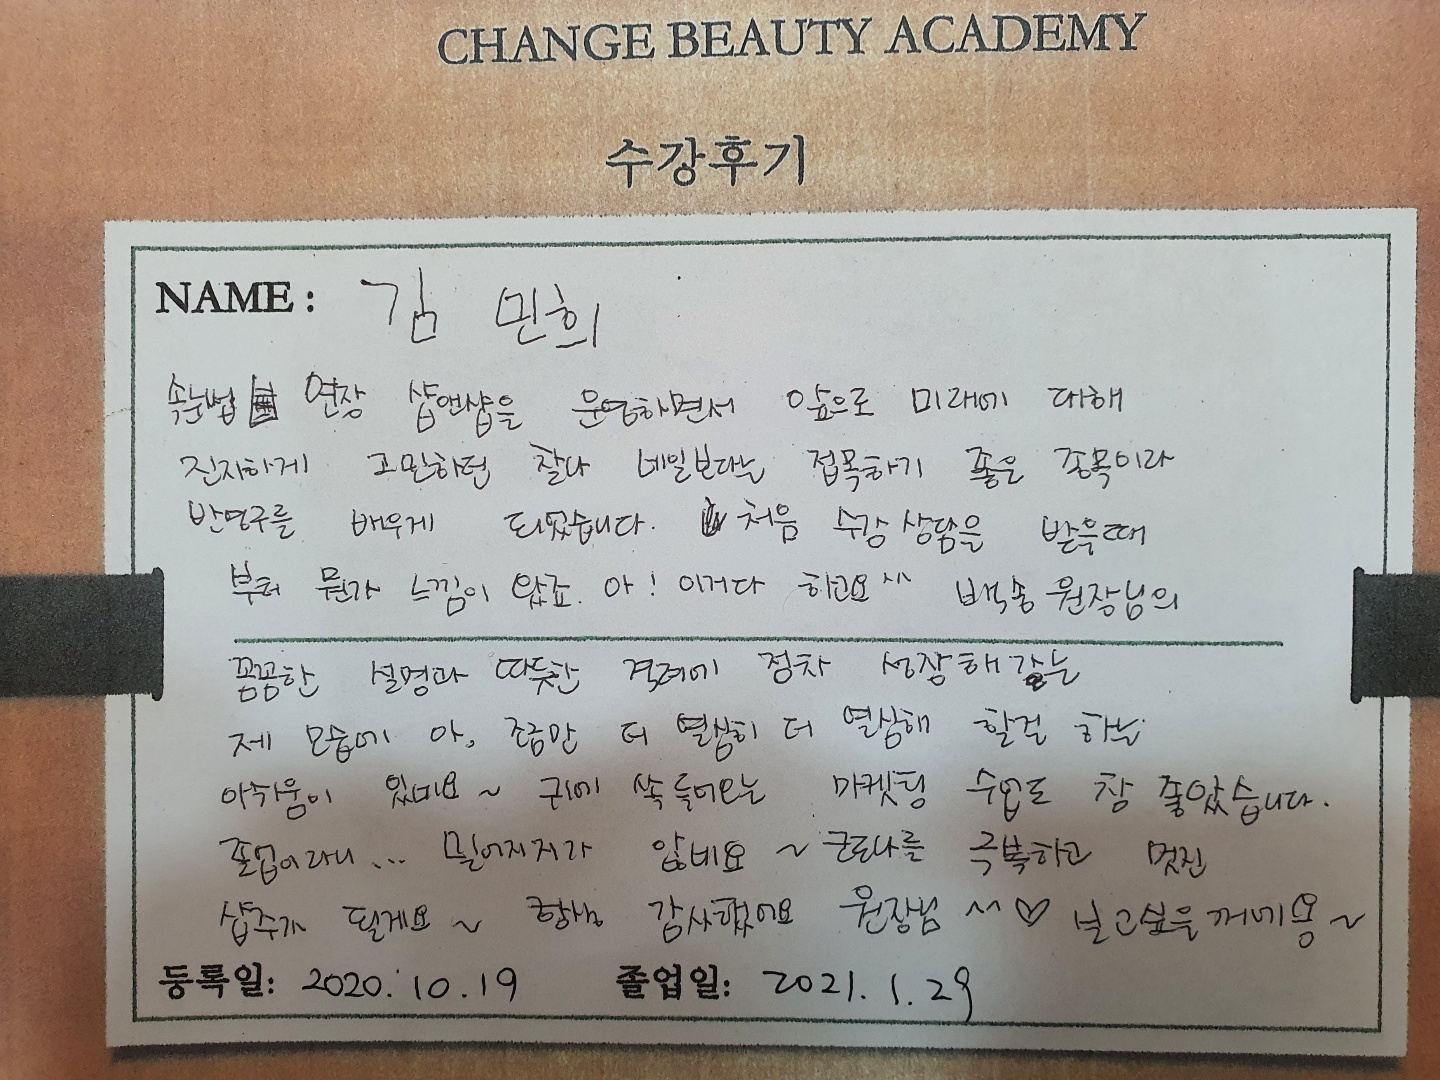 CHANGE BEAUTY ACADEMY
수강후기
NAME : 김 민희
속눈썹 연장 샵앤샵을 운영하면서 앞으로 미래에 대해
진지하게 고민하던 찰나 네일보다는 접목하기 좋은 종목이라
반영구를 배우게 되었습니다. 처음 수강 상담을 받을때
부터 뭔가 느낌이 왔죠. 아! 이거다 하고요^^ 백송 원장님의
꼼꼼한 설명과 따듯한 격려에 점차 성장해가는
제 모습에 아, 조금만 더 열심히 더 열심해 할걸 하는
아쉬움이 있네요~ 귀에 쏙 들어오는 마켓팅 수업도 참 좋았습니다.
졸업이라니... 믿어지지가 않네요~ 코로나를 극복하고 멋진
샵주가 될게요~ 항상 감사했어요 원장님 ^^♡ 보고싶을꺼에용~
등록일: 2020.10.19 졸업일: 2021.1.29